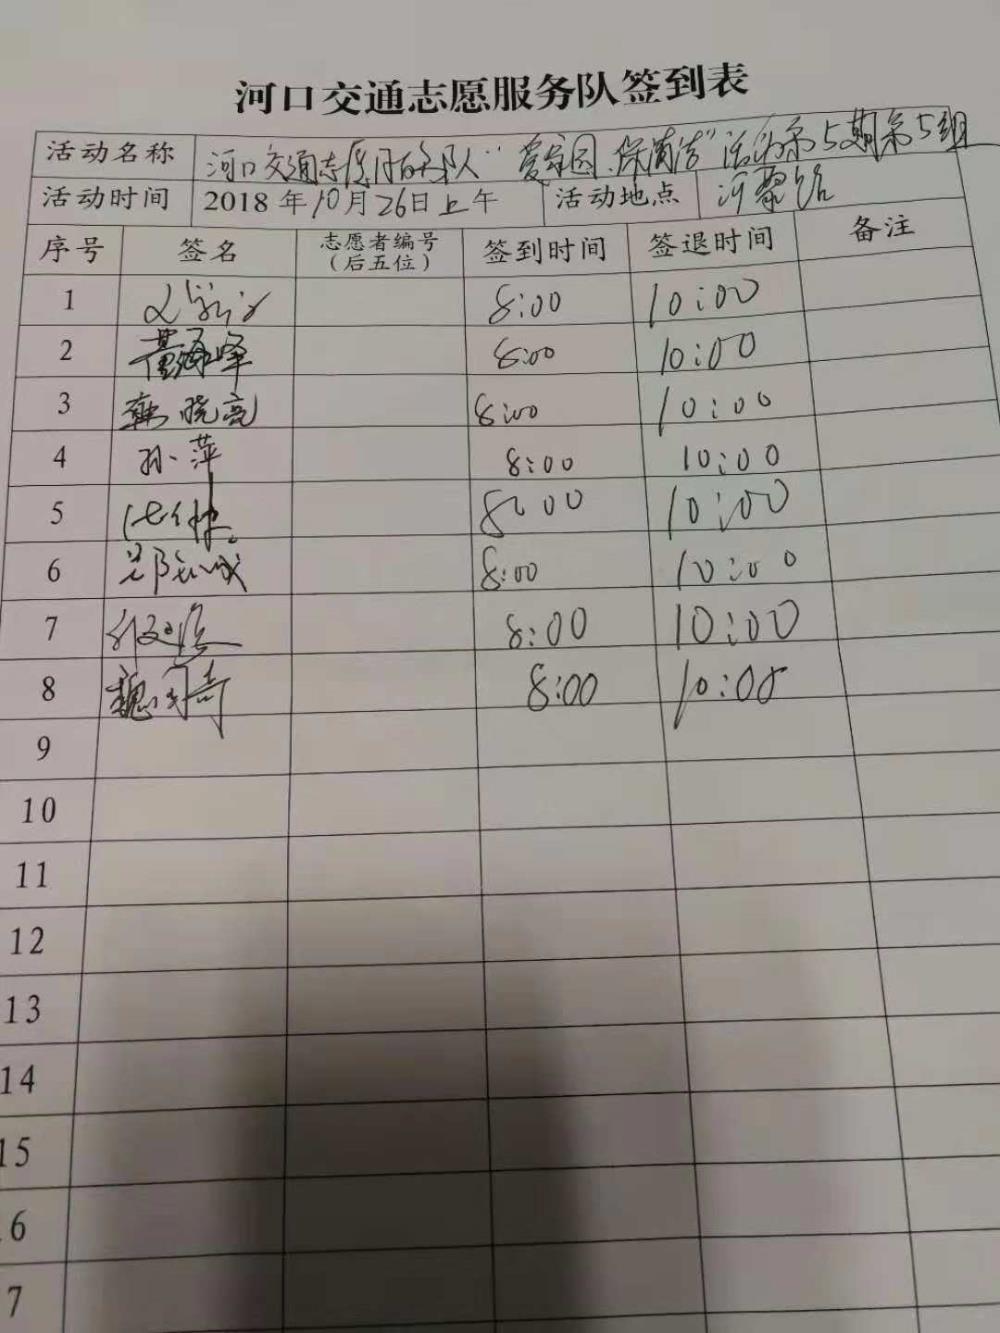 河口交通志愿服务队签到表
活动名称 河口交通志愿服务队"爱家园、保清洁"活动第5期第5组
活动时间 2018年10月26日上午 活动地点 河黎路
序号 签名 志愿者编号（后五位） 签到时间 签退时间 备注
1 8:00 10:00
2 8:00 10:00
3 韩晓亮 8:00 10:00
4 孙萍 8:00 10:00
5 8:00 10:00
6 8:00 10:00
7 8:00 10:00
8 魏国奇 8:00 10:00
9
10
11
12
13
14
15
6
7